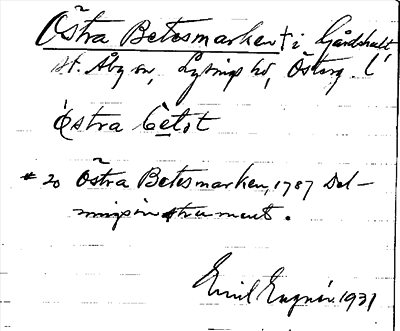 Östra Betesmarken † i Gårdshult
St. Åby sn, Lysings hd, Österg. l
Östra betet
* 20 Östra Betesmarken, 1787 Del-
ningsinstrument.
Emil 1931